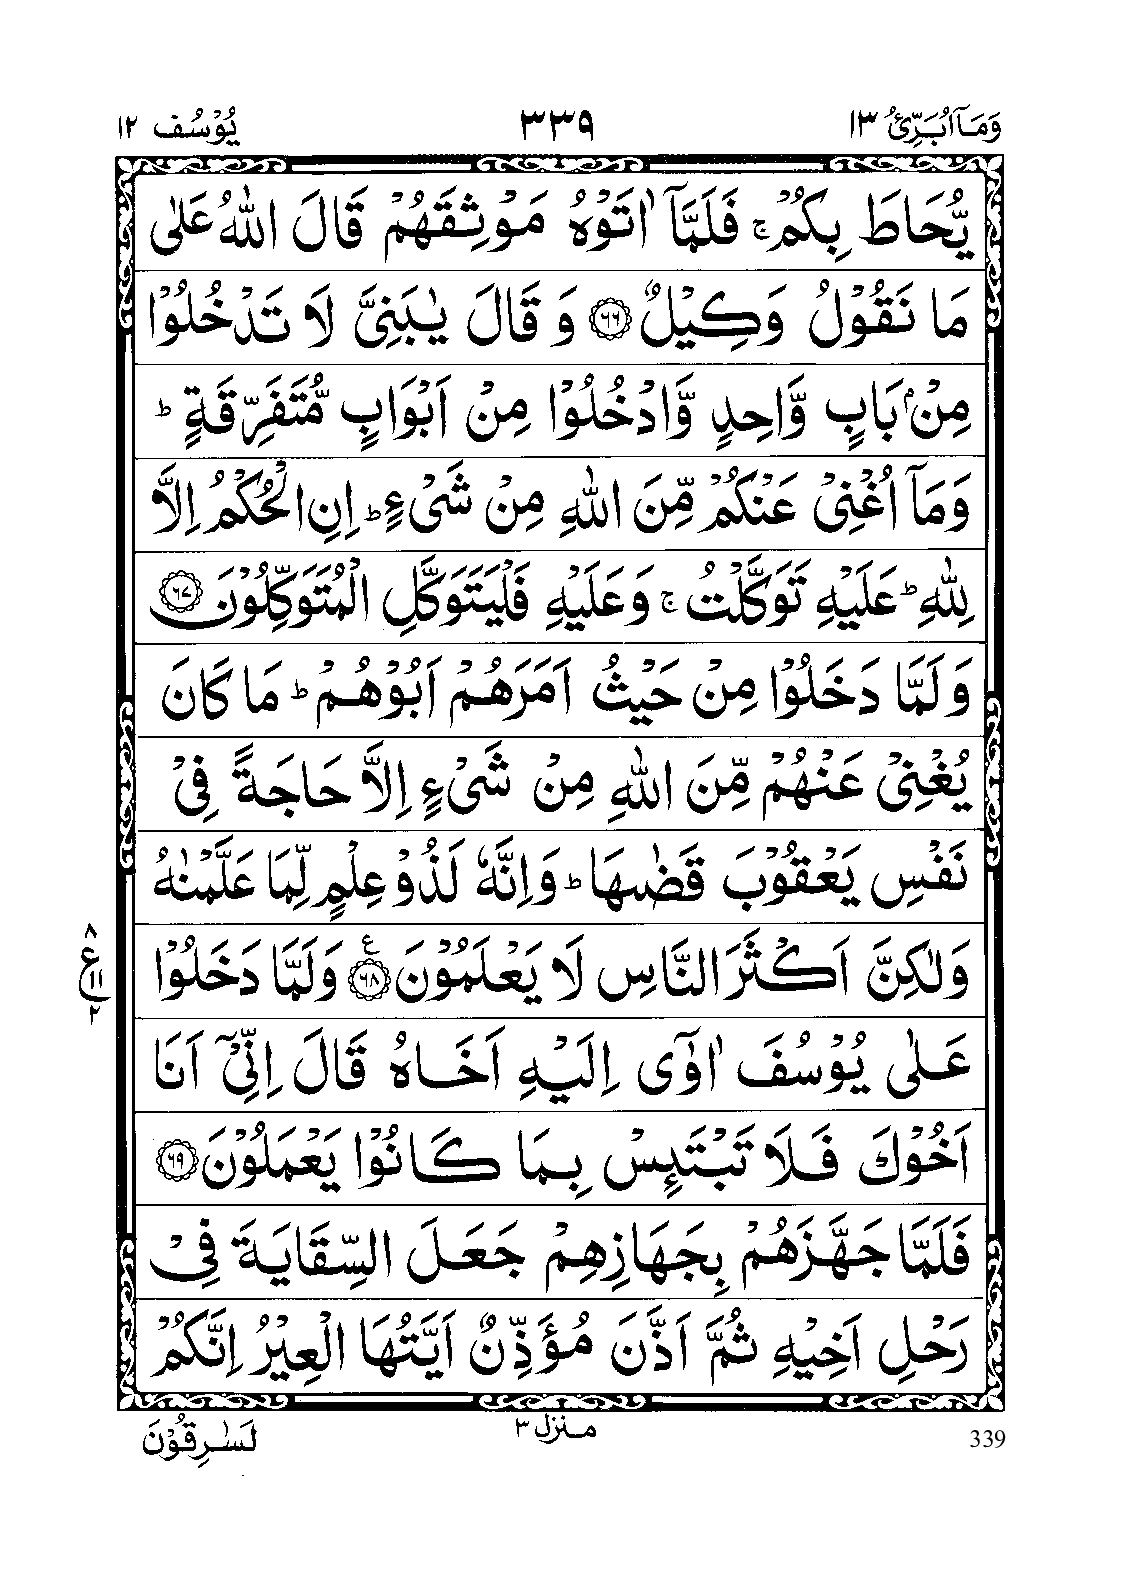 وَمَاۤ اُبَرِّئُ ١٣ ٣٣٩ يُوْسُف ١٢
يُّحَاطَ بِكُمْ ۚ فَلَمَّاۤ اٰتَوْهُ مَوْثِقَهُمْ قَالَ اللّٰهُ عَلٰى
مَا نَقُوْلُ وَكِيْلٌ ۝٦٦ وَ قَالَ يٰبَنِىَّ لَا تَدْخُلُوْا
مِنْۢ بَابٍ وَّاحِدٍ وَّادْخُلُوْا مِنْ اَبْوَابٍ مُّتَفَرِّقَةٍ ؕ
وَمَاۤ اُغْنِىْ عَنْكُمْ مِّنَ اللّٰهِ مِنْ شَىْءٍ ؕ اِنِ الْحُكْمُ اِلَّا
لِلّٰهِ ؕ عَلَيْهِ تَوَكَّلْتُ ۚ وَعَلَيْهِ فَلْيَتَوَكَّلِ الْمُتَوَكِّلُوْنَ ۝٦٧
وَ لَمَّا دَخَلُوْا مِنْ حَيْثُ اَمَرَهُمْ اَبُوْهُمْ ؕ مَا كَانَ
يُغْنِىْ عَنْهُمْ مِّنَ اللّٰهِ مِنْ شَىْءٍ اِلَّا حَاجَةً فِىْ
نَفْسِ يَعْقُوْبَ قَضٰىهَا ؕ وَاِنَّهٗ لَذُوْ عِلْمٍ لِّمَا عَلَّمْنٰهُ
وَلٰكِنَّ اَكْثَرَ النَّاسِ لَا يَعْلَمُوْنَ ۝٦٨ ع وَلَمَّا دَخَلُوْا
٨
ع ١١
٢
عَلٰى يُوْسُفَ اٰوٰۤى اِلَيْهِ اَخَاهُ قَالَ اِنِّىْۤ اَنَا
اَخُوْكَ فَلَا تَبْتَئِسْ بِمَا كَانُوْا يَعْمَلُوْنَ ۝٦٩
فَلَمَّا جَهَّزَهُمْ بِجَهَازِهِمْ جَعَلَ السِّقَايَةَ فِىْ
رَحْلِ اَخِيْهِ ثُمَّ اَذَّنَ مُؤَذِّنٌ اَيَّتُهَا الْعِيْرُ اِنَّكُمْ
339 منزل ٣ لَسٰرِقُوْنَ